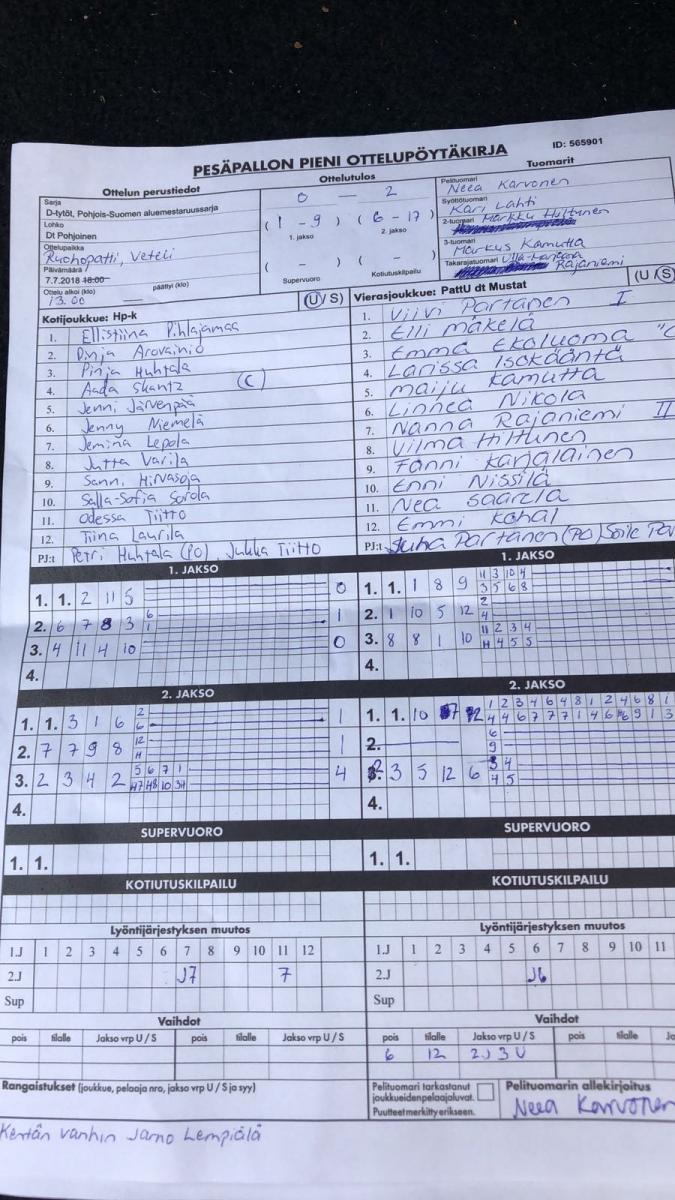 PESÄPALLON PIENI OTTELUPÖYTÄKIRJA
ID: 565901
Ottelun perustiedot
Sarja
D-tytöt, Pohjois-Suomen aluemestaruussarja
Lohko
Dt Pohjoinen
Ottelupaikka
Räyhöpatti, Veteli
Päivämäärä
7.7.2018 18:00
Ottelu alkoi (klo) päättyi (klo)
13.00
Ottelutulos
0 — 2
( 1 - 9 ) ( 6 - 17 )
1. jakso 2. jakso
( - ) ( - )
Supervuoro Kotiutuskilpailu
Tuomarit
Pelituomari
Neea Karvonen
Syöttötuomari
Kari Lahti
2-tuomari Markku Hiltunen
3-tuomari
Markus Kamutta
Takarajatuomari
Rajaniemi
Kotijoukkue: Hp-k (U / S)
1. Ellistiina Pihlajamaa
2. Pinja Arovainio
3. Pinja Huhtala
4. Aada Skantz (C)
5. Jenni Järvenpää
6. Jenny Niemelä
7. Jemina Lepola
8. Jutta Varila
9. Sanni Hirvasoja
10. Salla-Sofia Sorola
11. Odessa Tiitto
12. Tiina Laurila
PJ:t Petri Huhtala (PO), Jukka Tiitto
Vierasjoukkue: PattU dt Mustat (U / S)
1. Viivi Partanen I
2. Elli Mäkelä
3. Emma Ekoluoma "C
4. Larissa Isokääntä
5. Maiju Kamutta
6. Linnea Nikola
7. Nanna Rajaniemi II
8. Vilma Hiltunen
9. Fanni Karjalainen
10. Enni Nissilä
11. Nea Saarela
12. Emmi Kohal
PJ:t Juha Partanen (PO) Soile Par
1. JAKSO
1. 1. 2 11 5 0
2. 6 7 8 3 6 1 1
3. 4 11 4 10 0
4.
1. JAKSO
1. 1. 1 8 9 11 3 10 4
3 5 6 8
2. 1 10 5 12 2
4
3. 8 8 1 10 11 2 3 4
H 4 5 5
4.
2. JAKSO
1. 1. 3 1 6 2 6 1
2. 7 7 9 8 12 H 1
3. 2 3 4 2 5 6 7 1 4
4.
2. JAKSO
1. 1. 10 1 2 3 4 6 4 8 1 2 4 6 8 1
2. 6
9
3. 3 5 12 6
4 5
4.
SUPERVUORO
1. 1.
SUPERVUORO
1. 1.
KOTIUTUSKILPAILU
KOTIUTUSKILPAILU
Lyöntijärjestyksen muutos
1.J 1 2 3 4 5 6 7 8 9 10 11 12
2.J J7 7
Sup
Lyöntijärjestyksen muutos
1.J 1 2 3 4 5 6 7 8 9 10 11
2.J J6
Sup
Vaihdot
pois tilalle Jakso vrp U / S pois tilalle Jakso vrp U / S
Vaihdot
pois tilalle Jakso vrp U / S pois tilalle Ja
6 12 2J 3U
Rangaistukset (joukkue, pelaaja nro, jakso vrp U / S ja syy)
Pelituomari tarkastanut
joukkueiden pelaajaluvat.
Puutteet merkitty erikseen.
Pelituomarin allekirjoitus
Neea Karvonen
Kentän vanhin Jarno Lempiälä